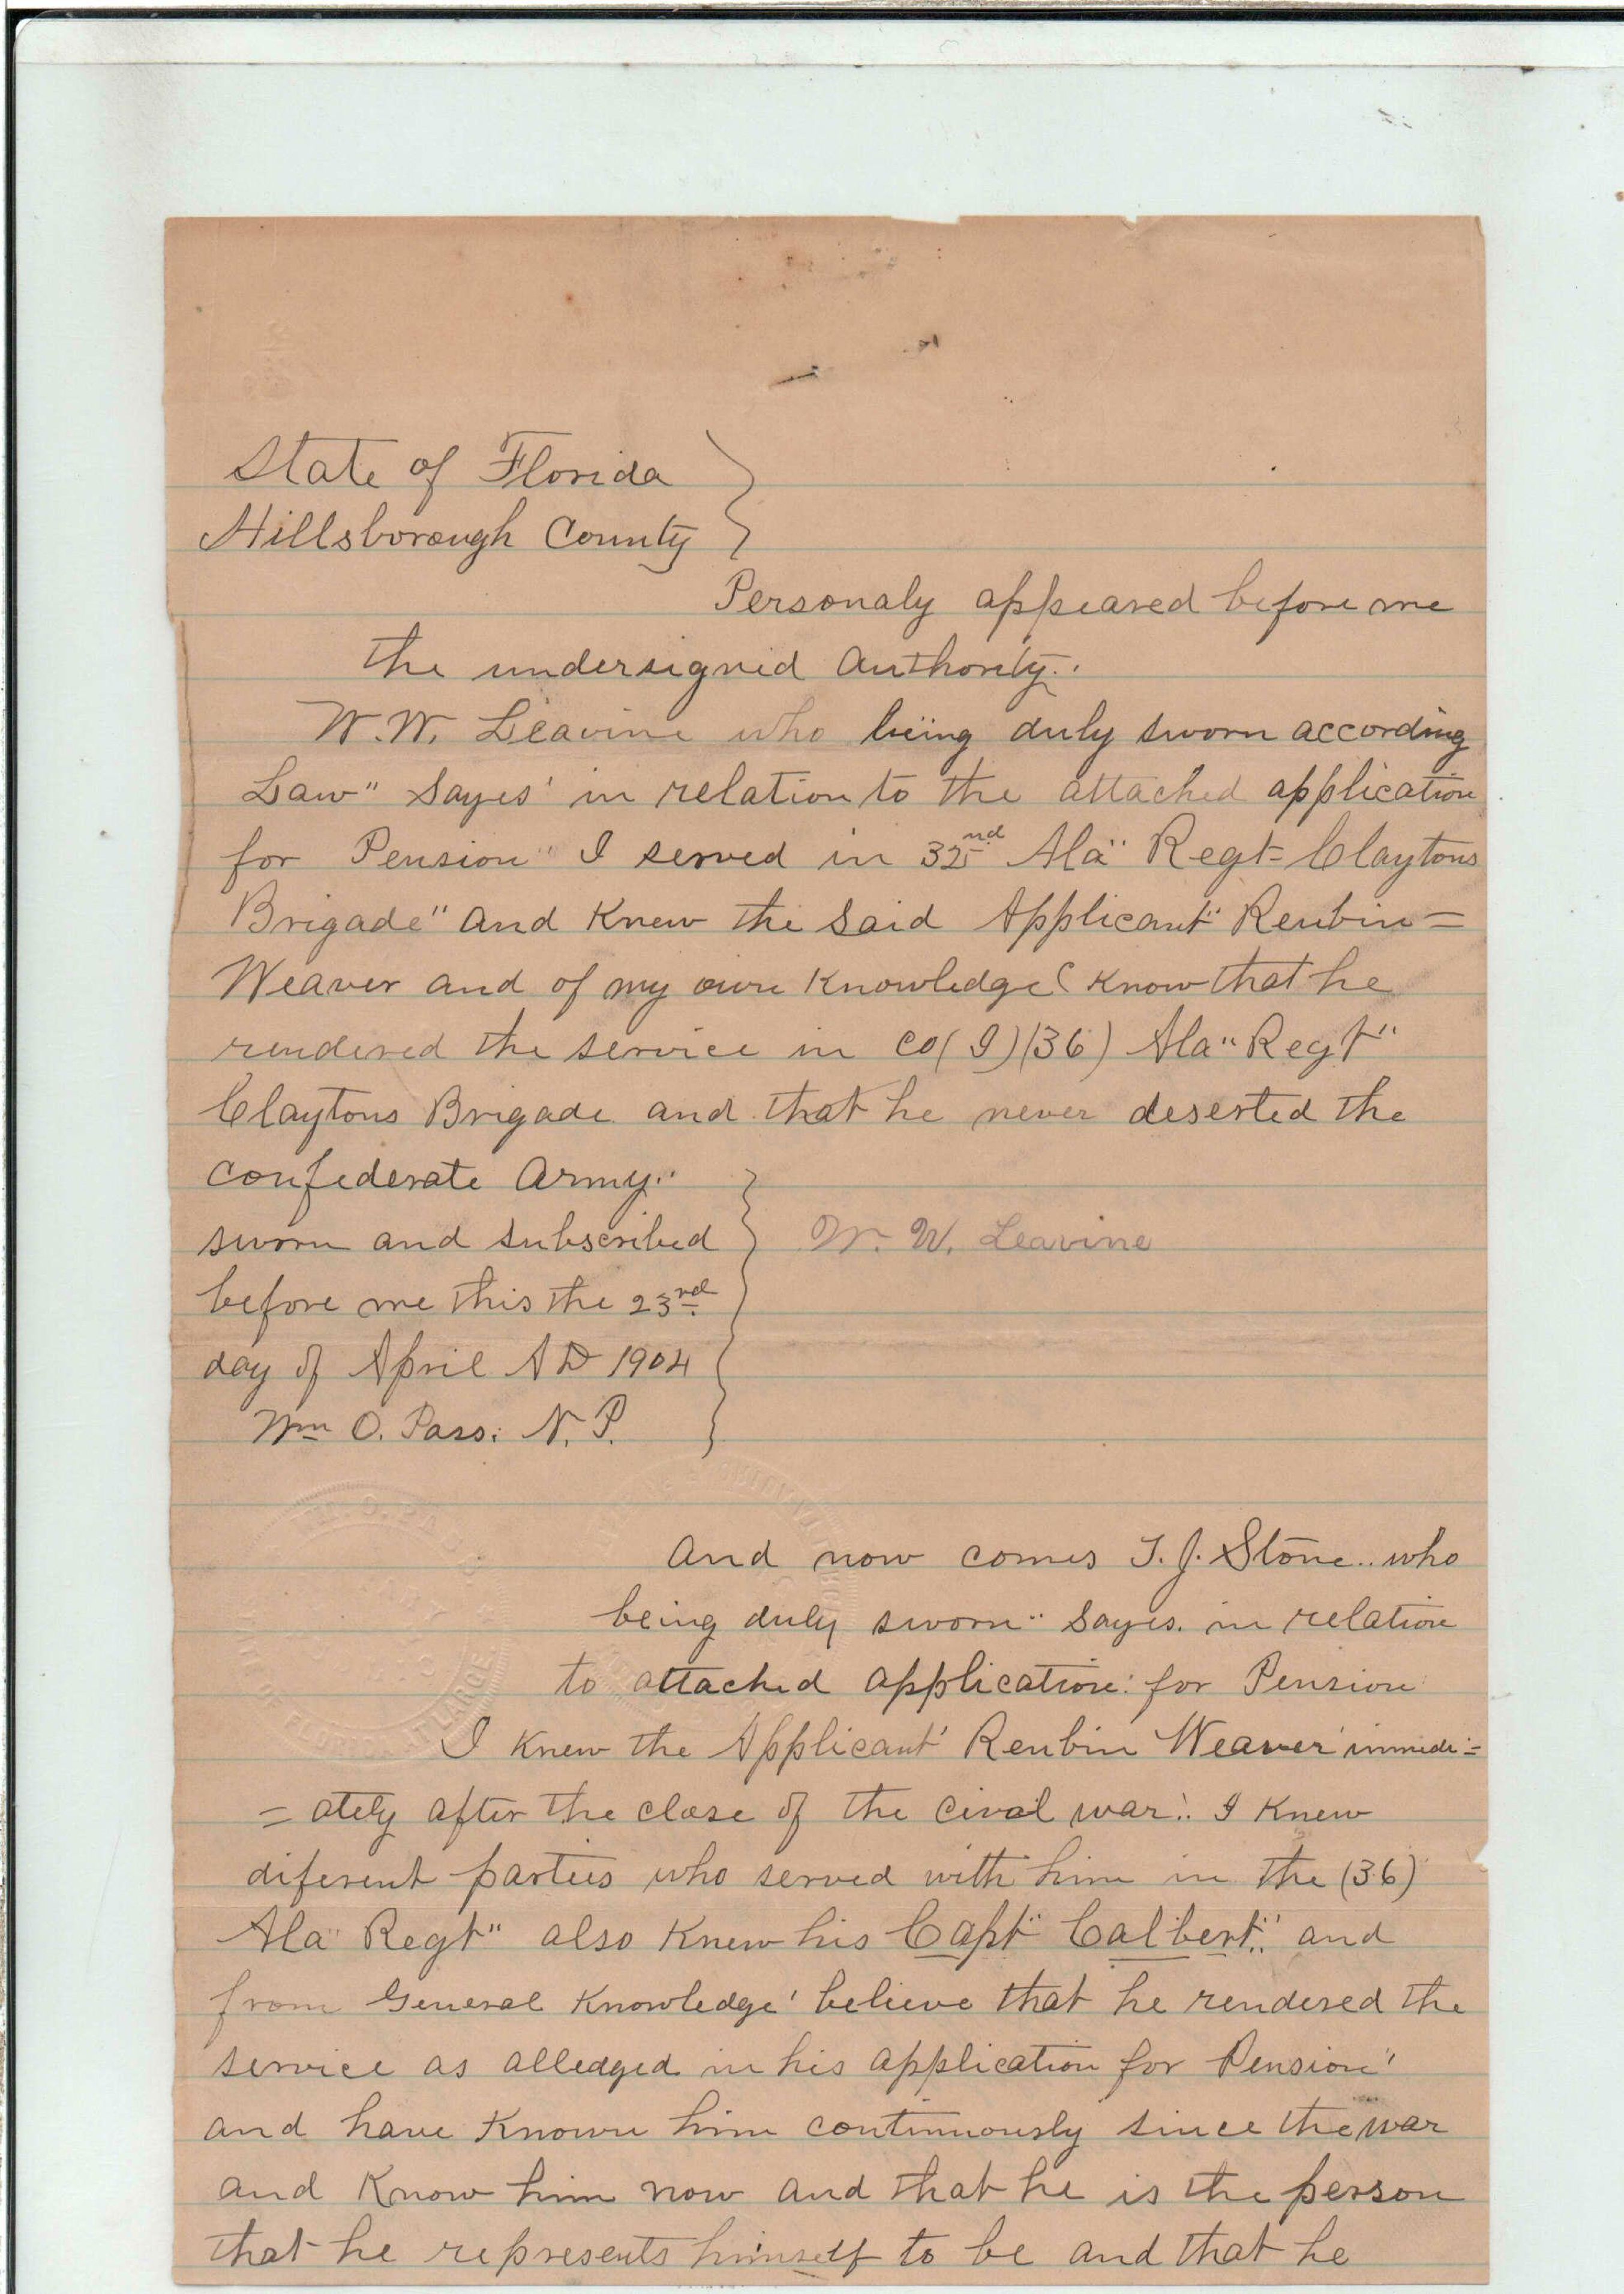 State of Florida
Hillsborough County
Personaly appeared before me
the undersigned Authority..
W. W. Leavine who being duly sworn according
Law" Sayes' in relation to the attached application
for Pension" I served in 32nd Ala" Regt= Claytons
Brigade" and Knew the Said Applicant" Reubin=
Weaver and of my own Knowledge Know that he
rendered the service in Co (I) (36) Ala" Regt"
Claytons Brigade and that he never deserted the
Confederate Army."
sworn and subscribed
before me this the 23rd
day of April AD 1904
Wm O. Pass: N. P.
W. W. Leavine
And now comes T. J. Stone.. who
being duly sworn" Sayes. in relation
to attached application: for Pension
I Knew the Applicant' Reubin Weaver immedi=
=ately after the close of the cival war:. I Knew
diferent parties who served with him in the (36)
Ala" Regt" also Knew his Capt" Calbert". and
from General Knowledge' believe that he rendered the
service as alledged in his application for Pension"
and have Known him continuously since the war
and Know him now and that he is the person
that he represents himself to be and that he